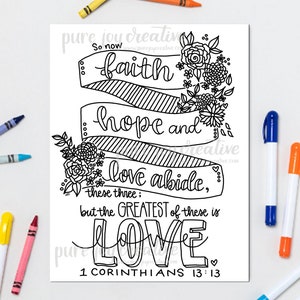 pure joy creative
So now
faith
hope and
love abide,
these three;
but the GREATEST of these is
LOVE
1 CORINTHIANS 13:13